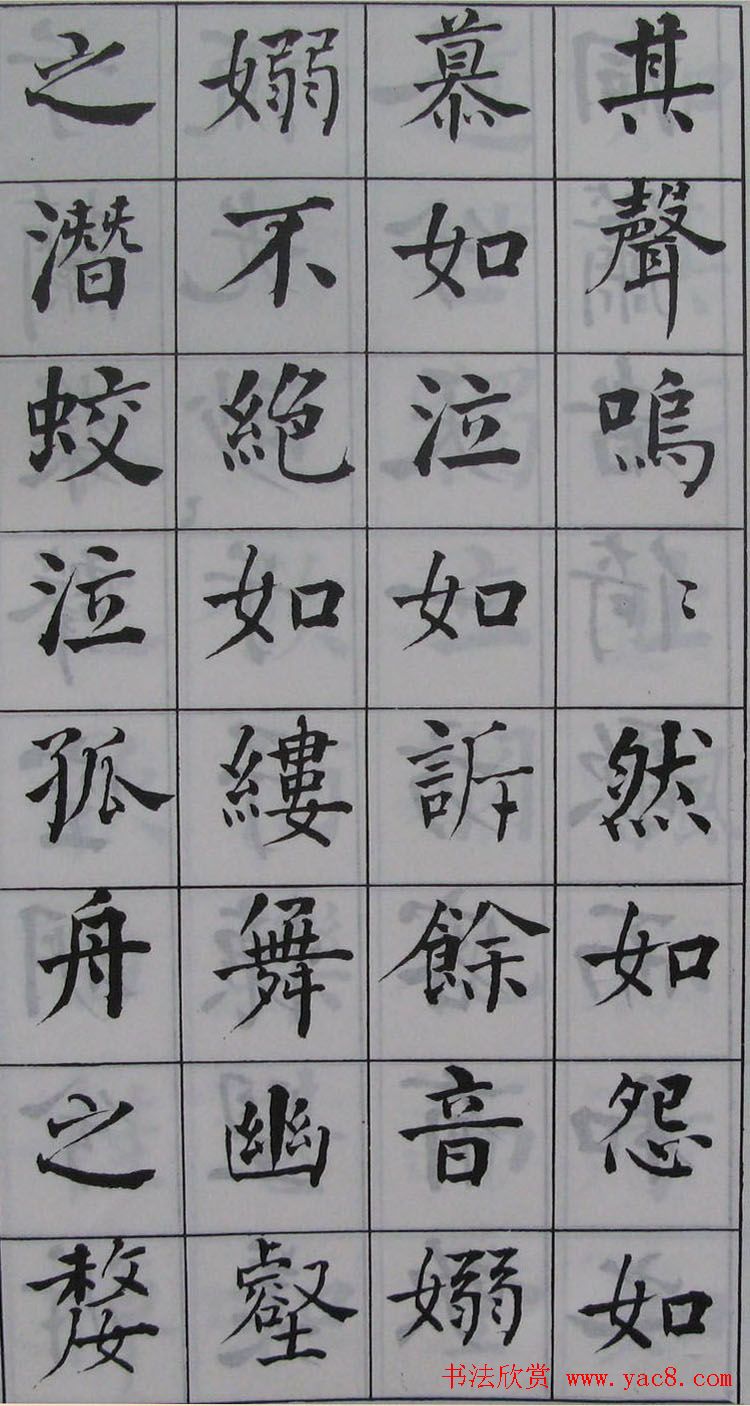 其聲嗚〻然如怨如
慕如泣如訴餘音嫋
嫋不絕如縷舞幽壑
之潛蛟泣孤舟之嫠
书法欣赏 www.yac8.com